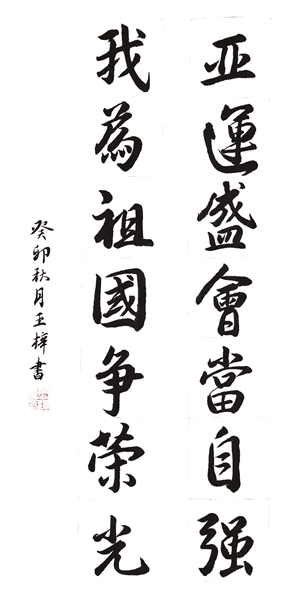 亚運盛會當自强
我為祖國争荣光
癸卯秋月王梓書